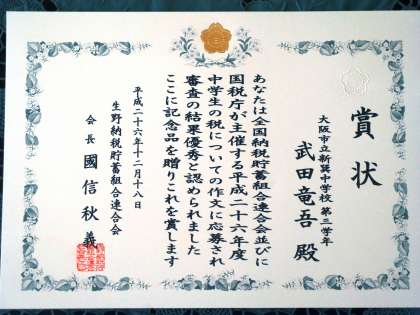 賞状
大阪市立新巽中学校 第三学年
武田竜吾 殿
あなたは全国納税貯蓄組合連合会並びに
国税庁が主催する平成二十六年度
中学生の税についての作文に応募され
審査の結果優秀と認められました
ここに記念品を贈りこれを賞します
平成二十六年十二月十八日
生野納税貯蓄組合連合会
会長 國信秋義